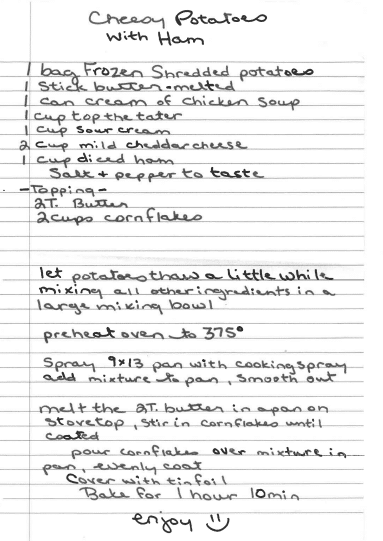 Cheesy Potatoes
with Ham
1 bag Frozen Shredded potatoes
1 Stick butter-melted
1 can cream of chicken soup
1 cup top the tater
1 cup sour cream
2 cup mild cheddar cheese
1 cup diced ham
Salt + pepper to taste
-Topping-
2T. Butter
2 cups cornflakes
let potatoes thaw a little while
mixing all other ingredients in a
large mixing bowl
preheat oven to 375°
Spray 9x13 pan with cooking spray
add mixture to pan, smooth out
melt the 2T. butter in a pan on
stovetop, stir in cornflakes until
coated
pour cornflakes over mixture in
pan, evenly coat
Cover with tinfoil
Bake for 1 hour 10 min
enjoy